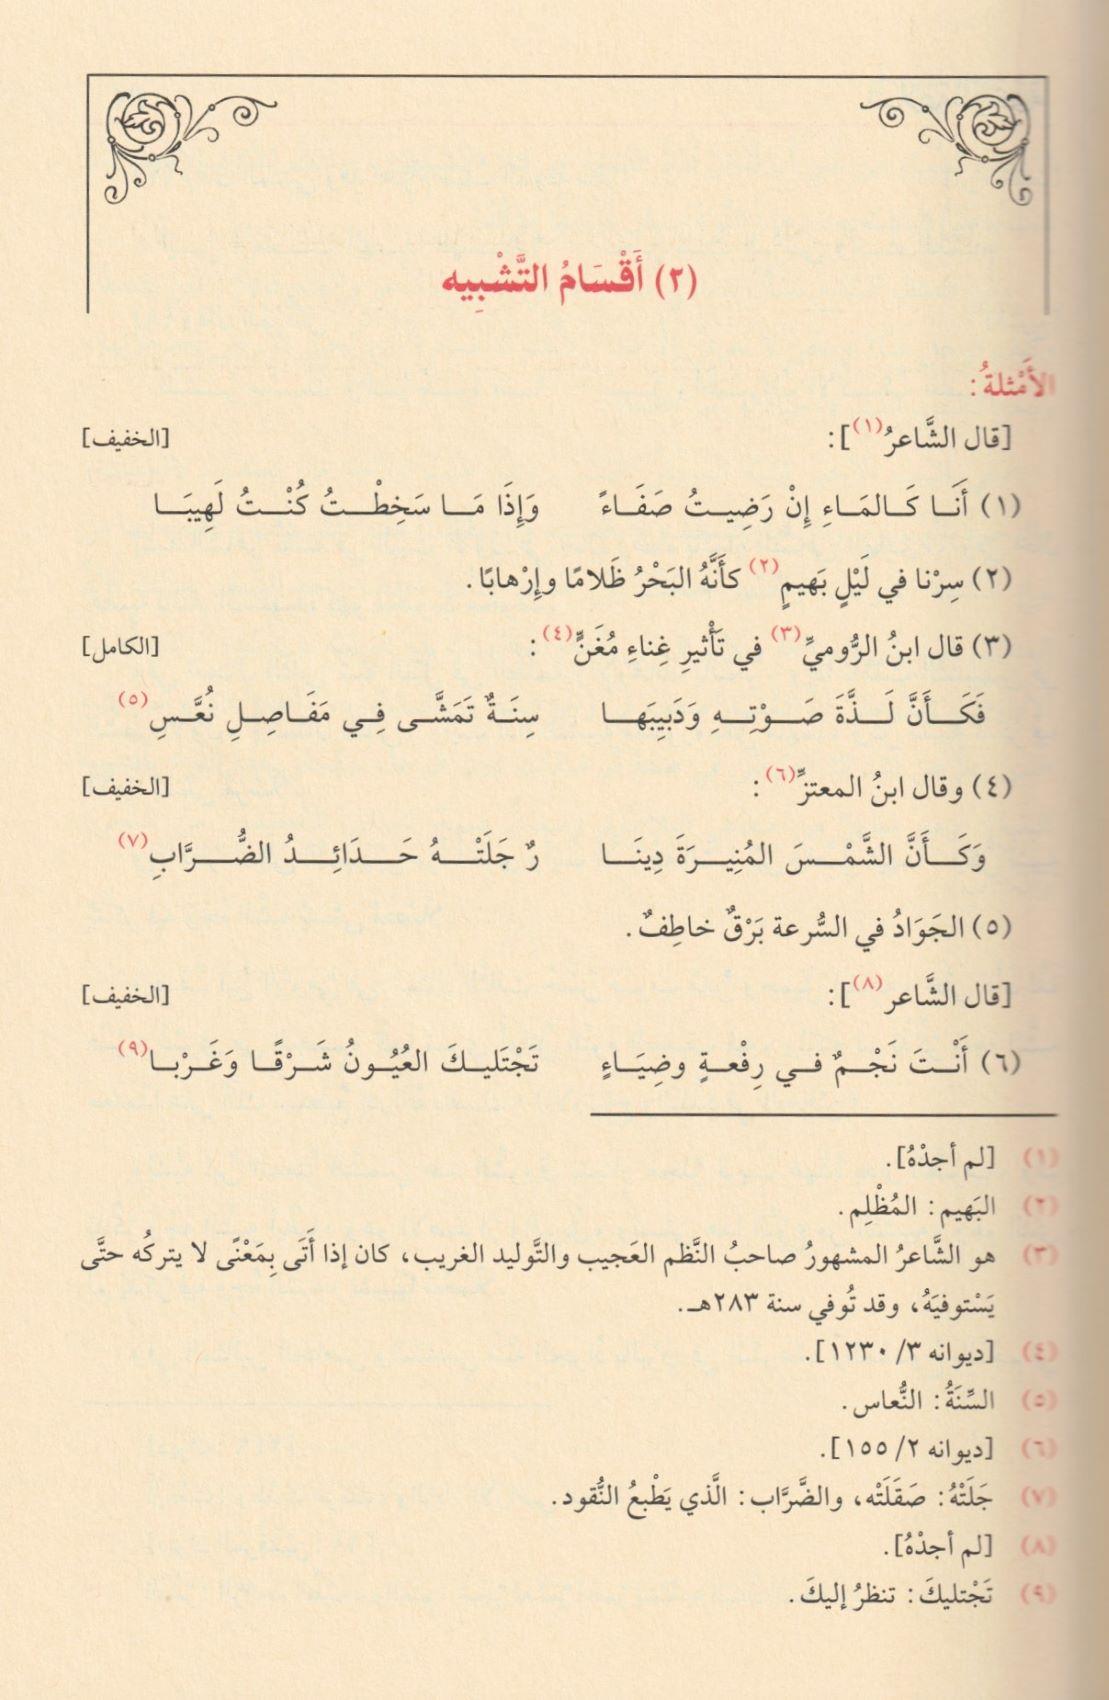 (٢) أَقْسَامُ التَّشْبِيه
الأَمْثلةُ:
[قال الشَّاعرُ(١)]: [الخفيف]
(١) أَنَـا كَـالمَـاءِ إِنْ رَضِيـتُ صَفَـاءً وَإِذَا مَـا سَخِطْـتُ كُنْـتُ لَهِيبَـا
(٢) سِرْنا في لَيْلٍ بَهيمٍ(٢) كأَنَّهُ البَحْرُ ظَلامًا وإِرْهابًا.
(٣) قال ابنُ الرُّوميِّ(٣) في تَأْثيرِ غِناءِ مُغَنٍّ(٤): [الكامل]
فَكَـأَنَّ لَـذَّةَ صَـوْتِـهِ وَدَبِيبَهـا سِنَـةٌ تَمَشَّـى فِـي مَفَـاصِـلِ نُعَّـسِ(٥)
(٤) وقال ابنُ المعتزِّ(٦): [الخفيف]
وَكَـأَنَّ الشَّمْـسَ المُنِيـرَةَ دِينَـا رٌ جَلَتْـهُ حَـدَائِـدُ الضُّـرَّابِ(٧)
(٥) الجَوَادُ في السُّرعة بَرْقٌ خاطِفٌ.
[قال الشَّاعر(٨)]: [الخفيف]
(٦) أَنْـتَ نَجْـمٌ فـي رِفْعـةٍ وضِيَـاءٍ تَجْتَليـكَ العُيُـونُ شَـرْقًـا وَغَـرْبـا(٩)
(١) [لم أجدْهُ].
(٢) البَهيم: المُظْلِم.
(٣) هو الشَّاعرُ المشهورُ صاحبُ النَّظم العَجيب والتَّوليد الغريب، كان إذا أَتَى بِمَعْنًى لا يتركُه حتَّى
يَسْتوفيَهُ، وقد تُوفي سنة ٢٨٣هـ.
(٤) [ديوانه ٣/ ١٢٣٠].
(٥) السِّنَةُ: النُّعاس.
(٦) [ديوانه ٢/ ١٥٥].
(٧) جَلَتْهُ: صَقَلَتْه، والضَّرَّاب: الَّذي يَطْبعُ النُّقود.
(٨) [لم أجدْهُ].
(٩) تَجْتليكَ: تنظرُ إليكَ.